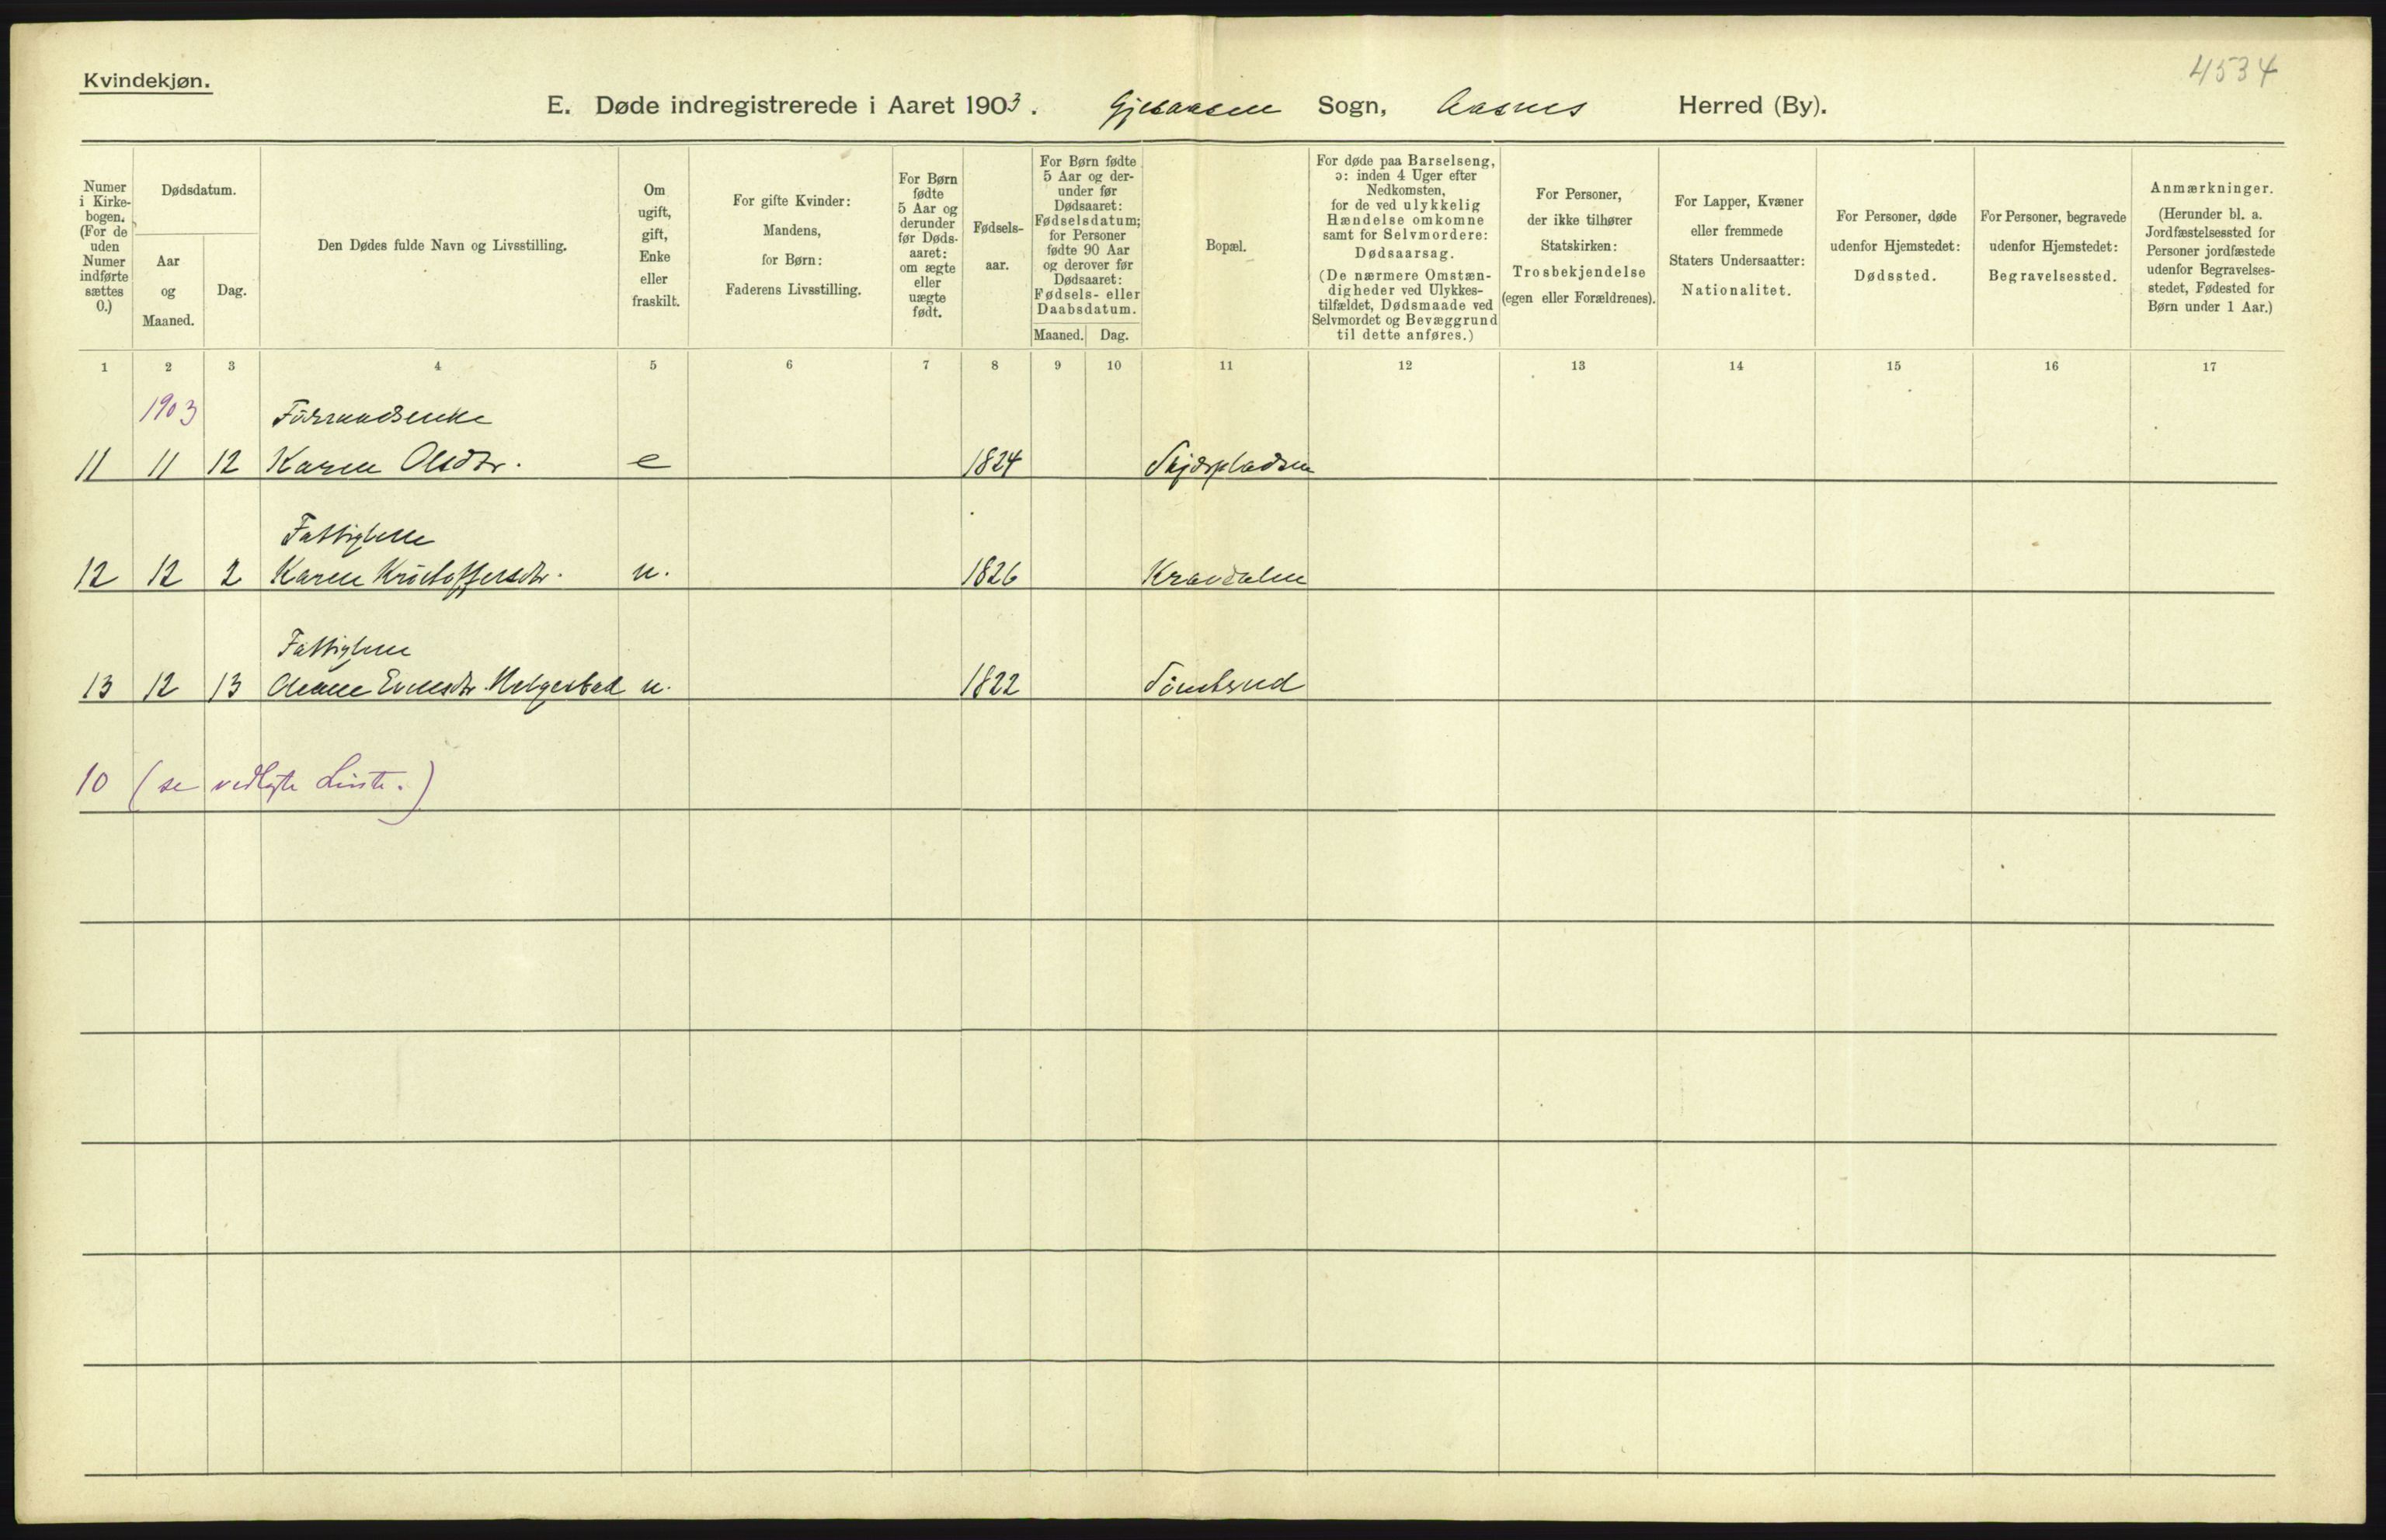 4534
Kvindekjøn.
E. Døde indregistrerede i Aaret 1903. Gjesaasen Sogn, Aasnes Herred (By).
Numer i Kirke-bogen. (For de uden Numer indførte sættes 0.)
Dødsdatum.
Aar og Maaned.
Dag.
Den Dødes fulde Navn og Livsstilling.
Om ugift, gift, Enke eller fraskilt.
For gifte Kvinder: Mandens, for Børn: Faderens Livsstilling.
For Børn fødte 5 Aar og derunder før Døds-aaret: om ægte eller uægte født.
Fødsels-aar.
For Børn fødte 5 Aar og der-under før Dødsaaret: Fødselsdatum; for Personer fødte 90 Aar og derover før Dødsaaret: Fødsels- eller Daabsdatum.
Maaned. Dag.
Bopæl.
For døde paa Barselseng, ɔ: inden 4 Uger efter Nedkomsten, for de ved ulykkelig Hændelse omkomne samt for Selvmordere: Dødsaarsag. (De nærmere Omstæn-digheder ved Ulykkes-tilfældet, Dødsmaade ved Selvmordet og Bevæggrund til dette anføres.)
For Personer, der ikke tilhører Statskirken: Trosbekjendelse (egen eller Forældrenes).
For Lapper, Kvæner eller fremmede Staters Undersaatter: Nationalitet.
For Personer, døde udenfor Hjemstedet: Dødssted.
For Personer, begravede udenfor Hjemstedet: Begravelsessted.
Anmærkninger. (Herunder bl. a. Jordfæstelsessted for Personer jordfæstede udenfor Begravelses-stedet, Fødested for Børn under 1 Aar.)
1 2 3 4 5 6 7 8 9 10 11 12 13 14 15 16 17
1903 Føderaadsenke
11 11 12 Karen Olsdtr. e 1824 Skjærpladsen
Fattiglem
12 12 2 Karen Kristoffersdtr. u. 1826
Fattiglem
13 12 13 Evensdtr. u. 1822
10 (se vedlagte Liste.)